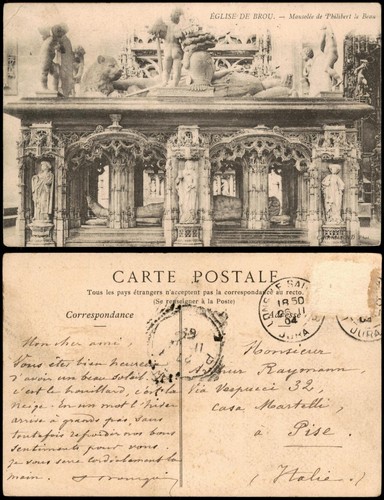 ÉGLISE DE BROU. - Mausolée de Philibert le Beau
CARTE POSTALE
Tous les pays étrangers n'acceptent pas la correspondance au recto.
(Se renseigner à la Poste)
Correspondance
Mon cher ami,
Vous êtes bien heureux
d'avoir un beau soleil
c'est le brouillard, c'est la
neige. En un mot l'hiver
arrive à grands pas. Sans
toutefois refroidir nos bons
sentiments pour vous.
Je vous serre cordialement la
main
LONS-LE-SAU
18 50
11
04
JURA
04
JURA
Monsieur
Arthur Raymann
Via Vespucci 32,
Casa Martelli,
à
Pise.
(Italie.)